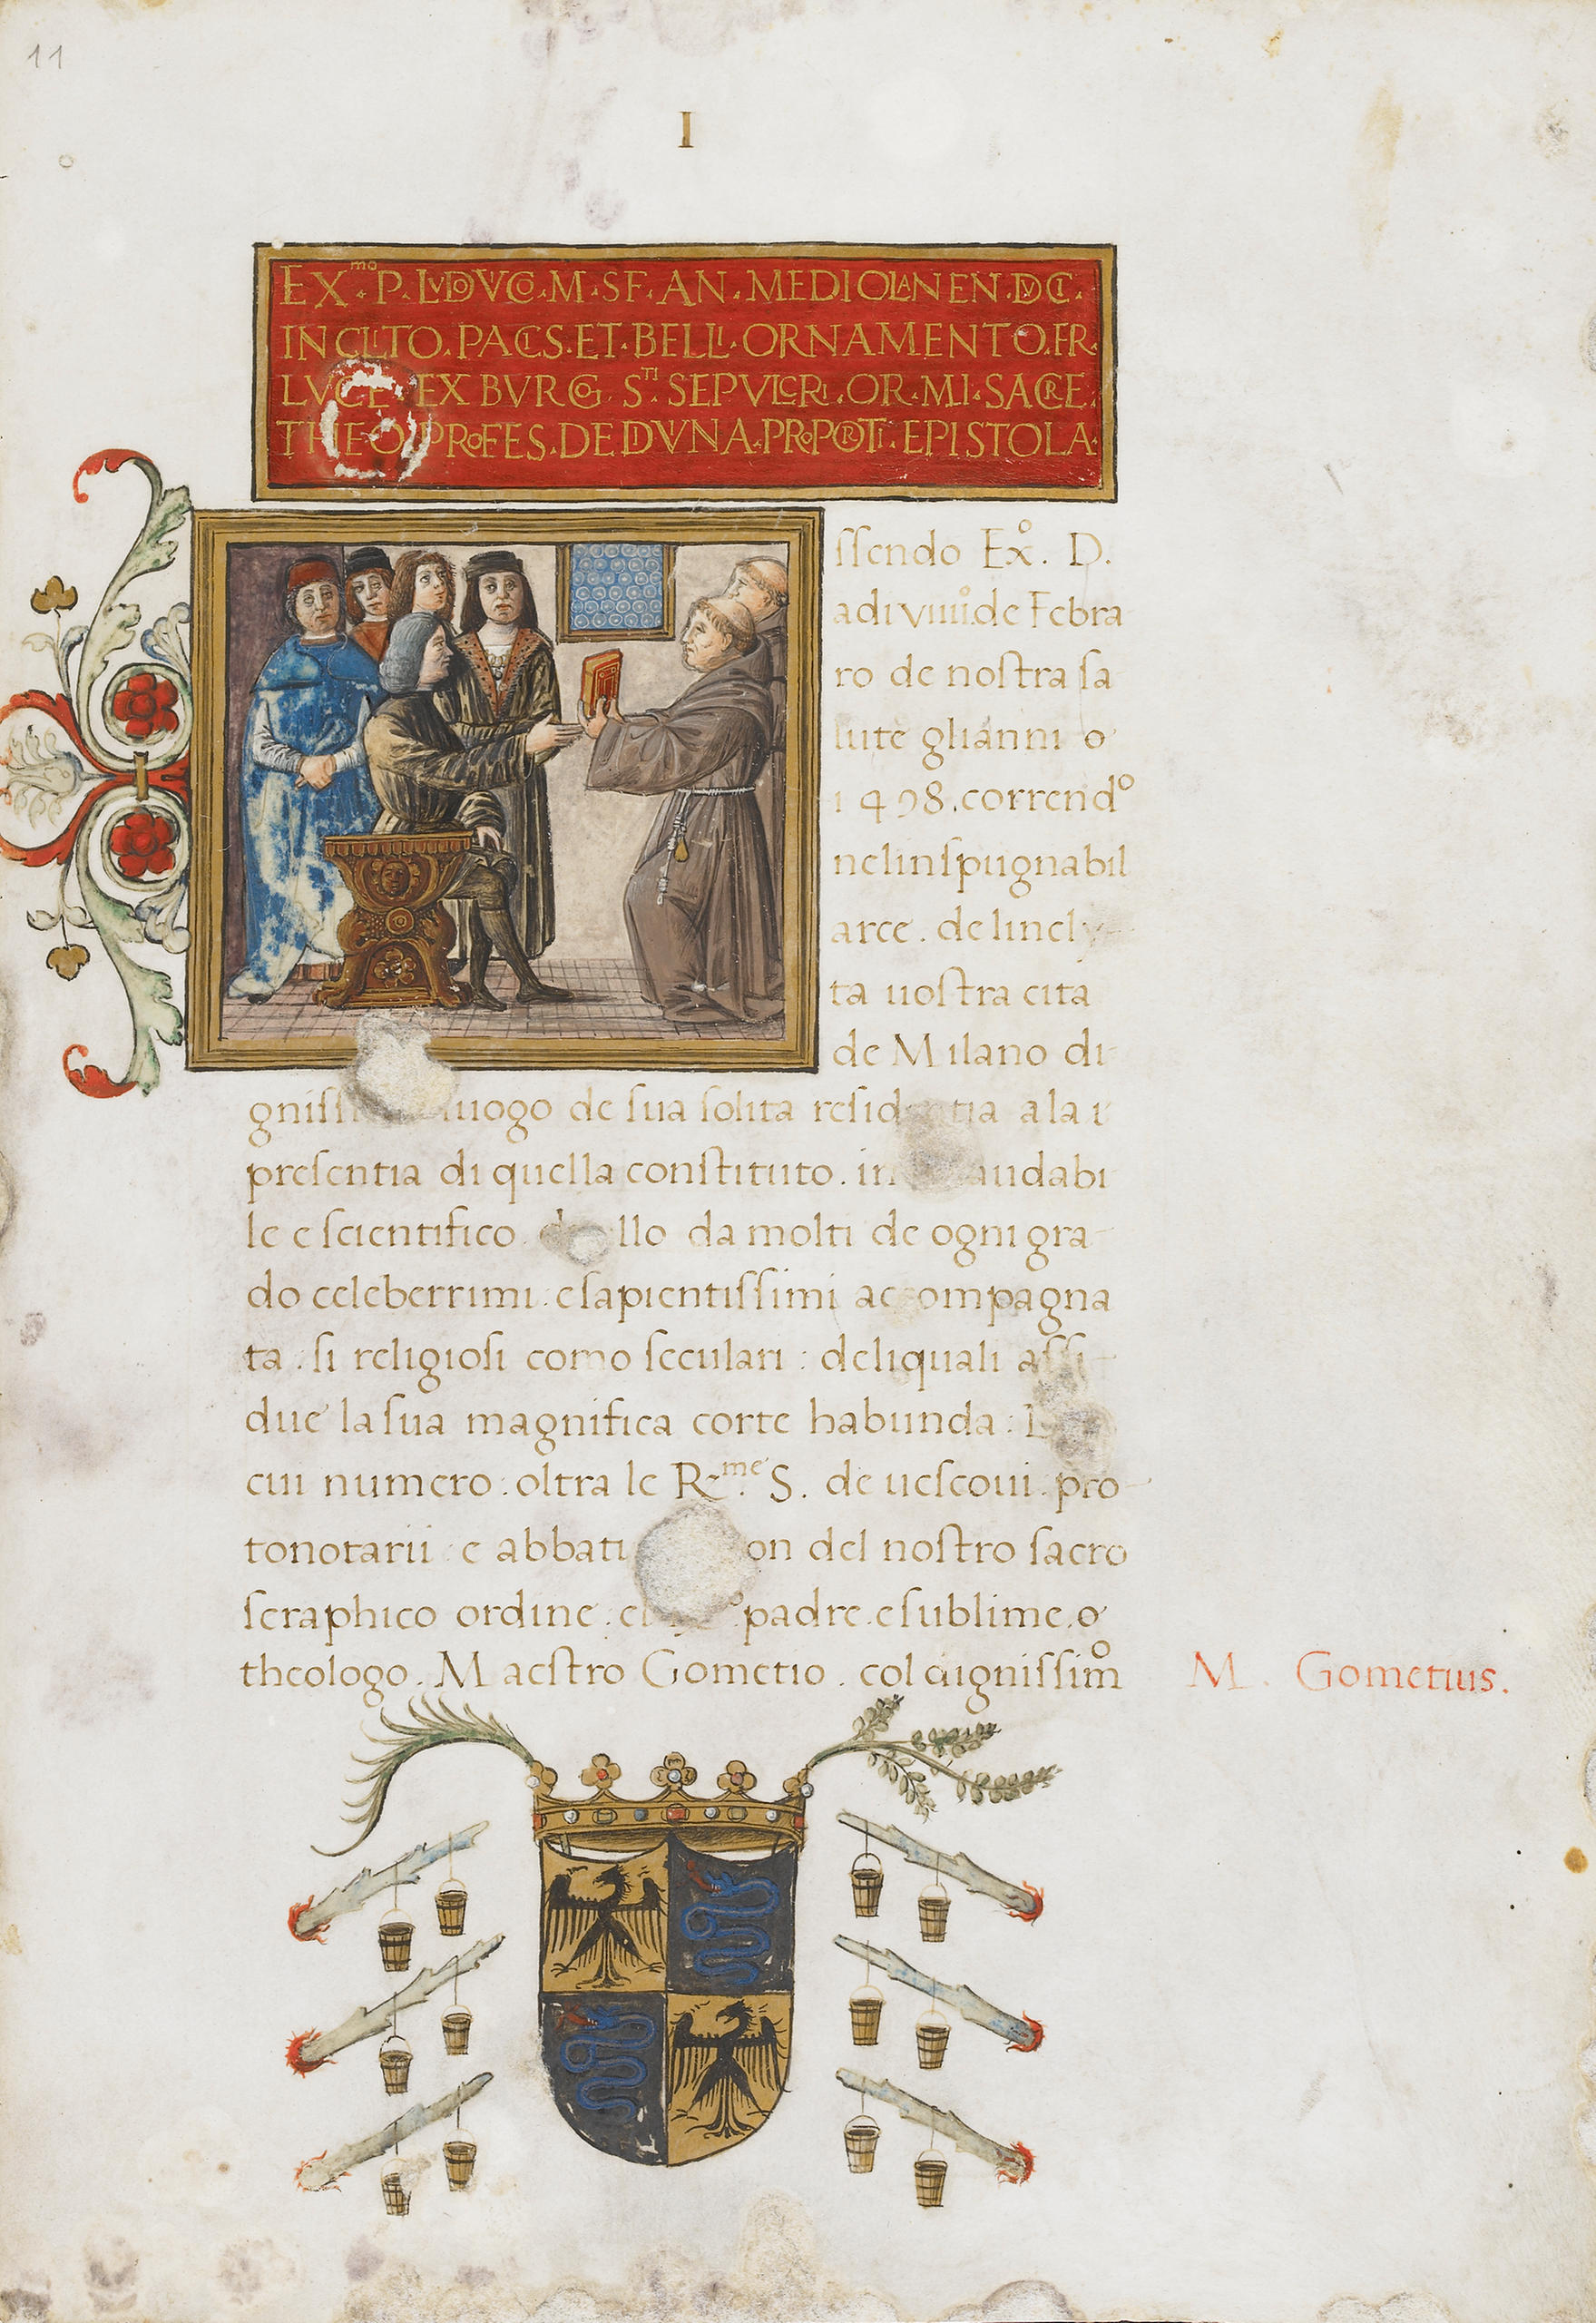 11
I
EXmo. P. LVDOVICO. M. SF. AN. MEDIOLANEN. DVCI.
INCLITO. PACIS. ET. BELLI. ORNAMENTO. FR.
LVCE EX BVRGO. STI. SEPVLCRI. OR. MI. SACRE.
THEO. PROFES. DE DIVINA. PROPORTI. EPISTOLA.
ſſendo Exo. D.
adi viiii. de Febra
ro de noſtra ſa
lute glianni o
1498. correndo
nelinſpugnabil
arce. de lincly-
ta uoſtra cita
de Milano di
luogo de ſua ſolita ala i
preſentia di quella conſtituto. in
le e ſcientifico. da molti de ogni gra
do celeberrimi. e ſapientiſſimi accompagna
ta. ſi religioſi como ſeculari: deliquali aſſi-
due la ſua magnifica corte habunda:
cui numero: oltra le Rme. S. de ueſcoui. pro-
tonotarii e abbati del noſtro ſacro
ſeraphico ordine. padre. e ſublime. o
theologo. Maeſtro Gometio. col digniſſimo
M. Gometius.